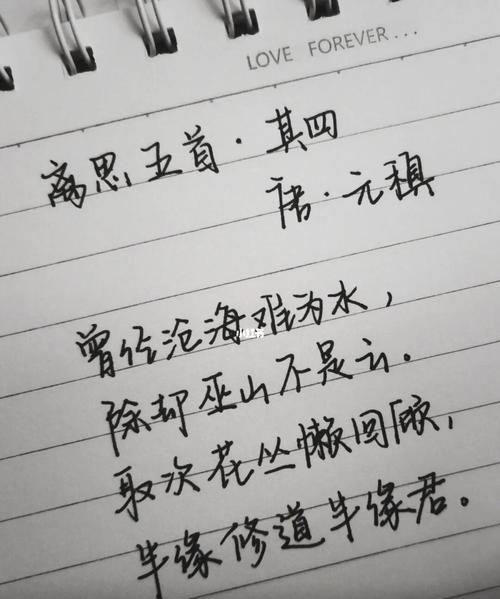 LOVE FOREVER...
离思五首·其四
唐·元稹
曾经沧海难为水，
小红书
除却巫山不是云。
取次花丛懒回顾，
半缘修道半缘君。